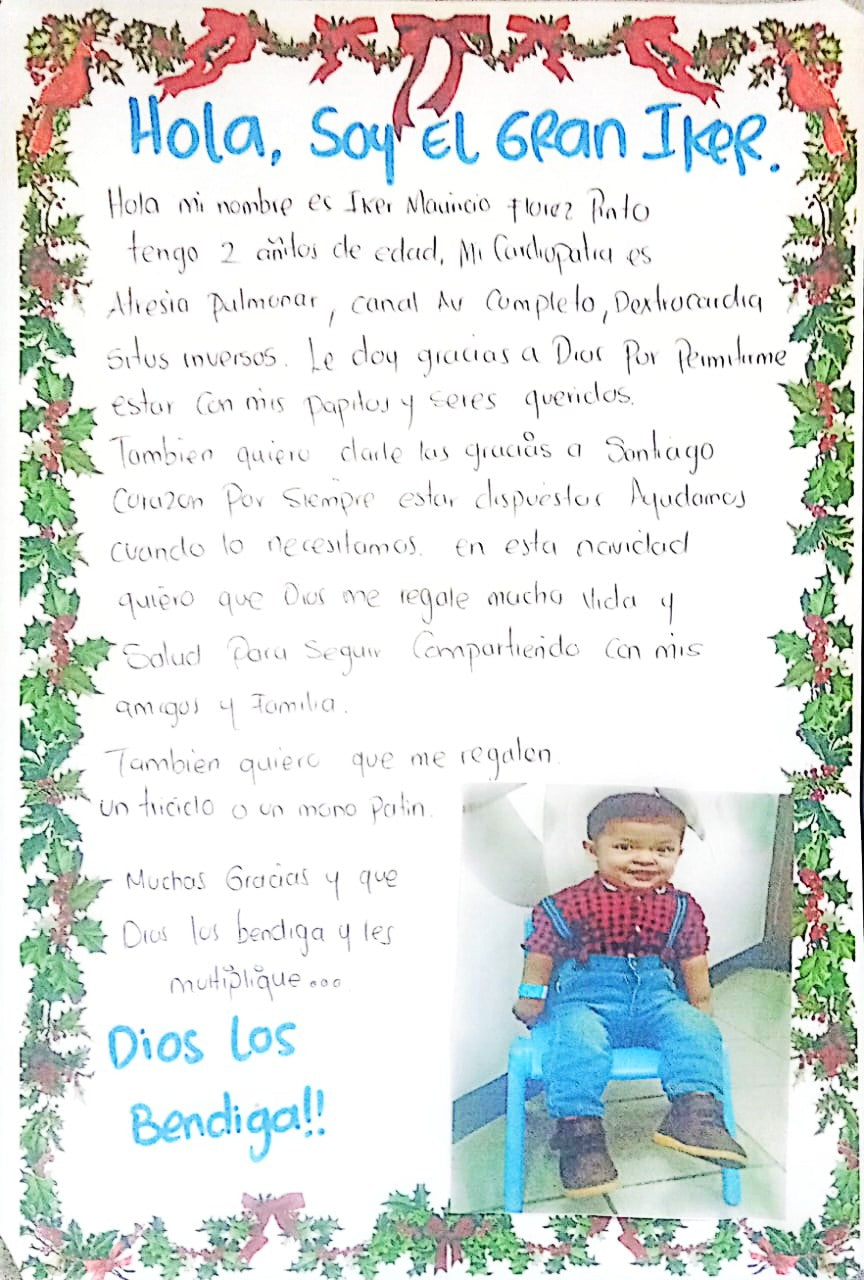 Hola, Soy El GRan IkeR.
Hola mi nombre es Iker Mauricio Florez Pinto
tengo 2 añitos de edad, Mi Cardiopatia es
Atresia Pulmonar, canal Av Completo, Dextrocardia
Situs inversos. Le doy gracias a Dios Por Permitirme
estar Con mis papitos y seres queridos.
Tambien quiero darle las gracias a Santiago
Corazon Por Siempre estar dispuestos Ayudarnos
cuando lo necesitamos. en esta navidad
quiero que Dios me regale mucha Vida y
Salud Para Seguir Compartiendo Con mis
amigos y Familia.
Tambien quiero que me regalen
un triciclo o un mono Patin.
Muchas Gracias y que
Dios los bendiga y les
multiplique...
Dios los
Bendiga!!